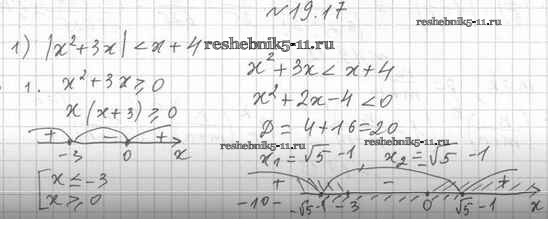 №19.17
reshebnik5-11.ru
1) |x²+3x| < x+4 reshebnik5-11.ru
1. x²+3x ≥ 0
x(x+3) ≥ 0
+ - +
-3 0 x
[ x ≤ -3
x ≥ 0
x²+3x < x+4
x²+2x-4 < 0
D = 4+16 = 20
reshebnik5-11.ru
x₁ = √5 -1 x₂ = √5 -1
reshebnik5-11.ru
+ - +
-10- -√5-1 -3 0 √5-1 x